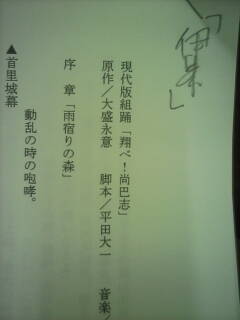 「伊禾」
現代版組踊「翔べ！尚巴志」
原作／大盛永意　脚本／平田大一　音楽／
序　章「雨宿りの森」
▲首里城幕
動乱の時の咆哮。